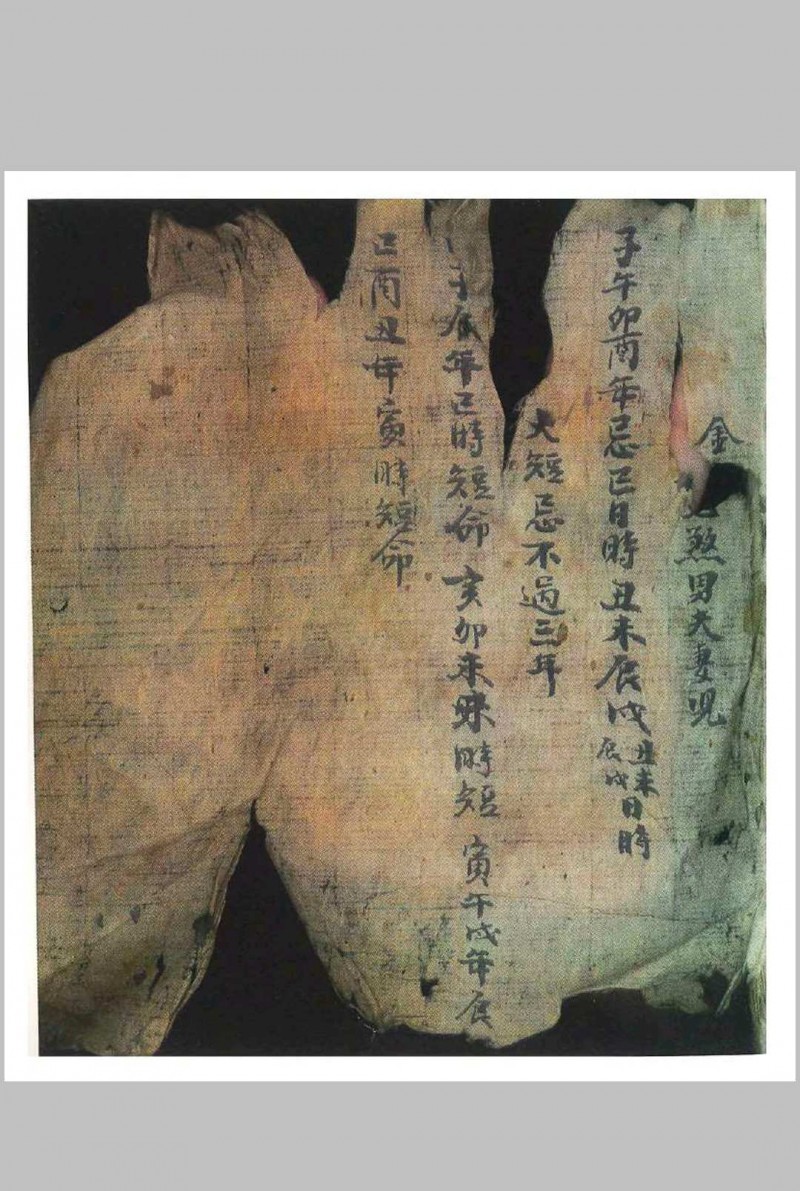 金 煞男夫妻児
子午卯酉年忌巳日時丑未辰戌丑未辰戌日時
大短忌不過三年
子辰年巳時短命亥卯未 時短寅午戌年辰
巳酉丑年寅時短命